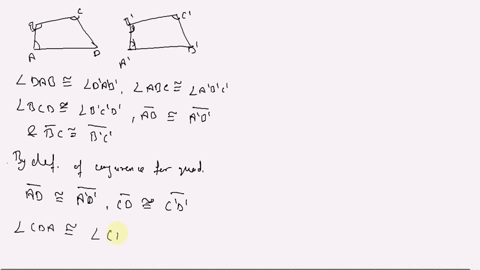 B C B' C'
A D A' D'
∠DAB ≅ ∠D'A'B', ∠ABC ≅ ∠A'B'C'
∠BCD ≅ ∠B'C'D', A̅B̅ ≅ A̅'B̅'
& B̅C̅ ≅ B̅'C̅'
By def. of congruence for quad.
A̅D̅ ≅ A̅'D̅', C̅D̅ ≅ C̅'D̅'
∠CDA ≅ ∠C